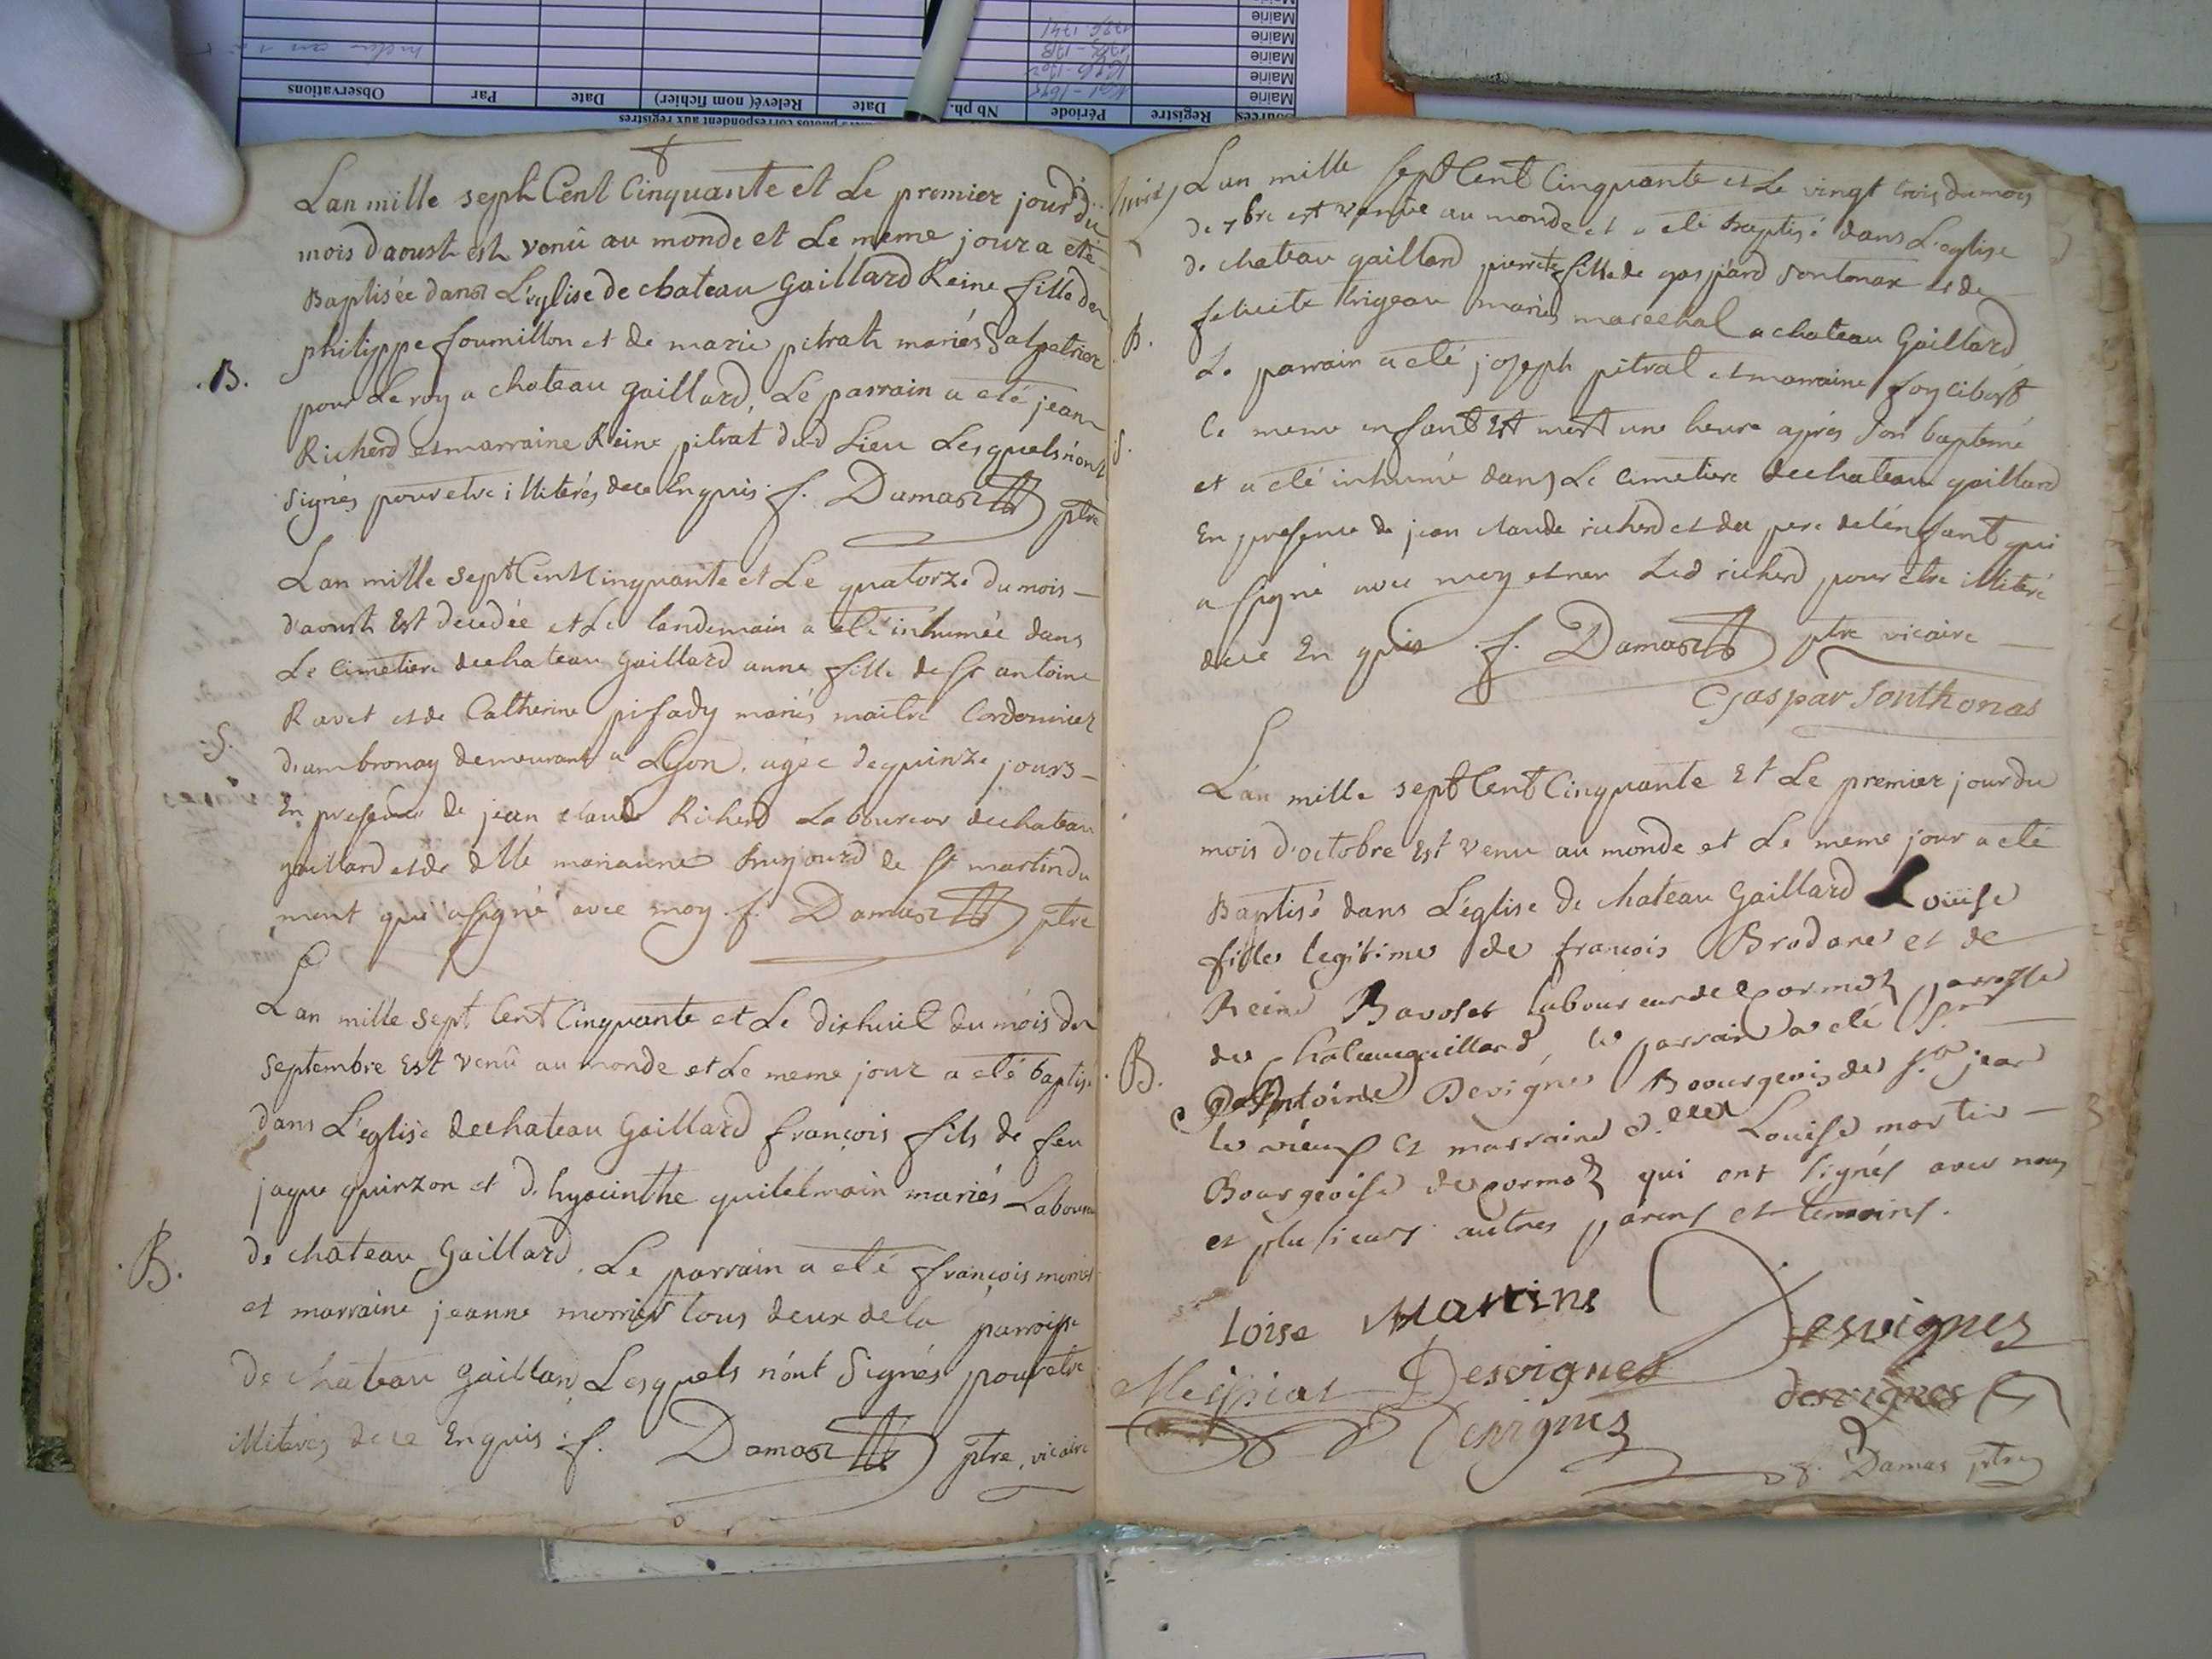 Lan mille seph Cent Cinquante et Le premier jour du
mois daoush esh venû au monde et Le meme jour a eté
Baptisée dans L'eglise de chateau Gaillard Reine fille de
philippe fournillon et de marie pitrath mariés Salpetrier
pour Le roy a chateau gaillard, Le parrain a eté jean
Richerd et marraine Reine pitrat dud Lieu Lesquels n'ont
signés pour etre illiterés de ce Enquis. f. Damas ptre
B.
Lan mille sept Cent Cinquante et Le quatorze du mois
d'aoush Est decedée et Le landemain a eté inhumée dans
Le Cimetiere de chateau Gaillard anne fille de Sr antoine
Ravet et de Catherine pisady mariés maitre Cordonnier
d'ambronay demeurant a Lyon, agée de quinze jours
En presence de jean claude Richerd Laboureur de chateau
gaillard et de dlle marianne Brujourd de St martin du
mont qui a signé avec moy f. Damas ptre
S.
Lan mille sept Cent Cinquante et Le dixhuit du mois de
Septembre Est venû au monde et Le meme jour a eté baptisé
dans L'eglise de chateau Gaillard françois fils de feu
jaque quinzon et d. hyacinthe guillelmain mariés Laboureur
de chateau Gaillard. Le parrain a eté françois
et marraine jeanne tous deux de la parroisse
de chateau gaillard Lesquels n'ont Signés pour etre
illiterés de ce Enquis. f. Damas ptre, vicaire
B.
Lan mille sept Cent Cinquante et Le vingt trois du mois
de 7bre est venue au monde et a eté baptisé dans L'eglise
de chateau gaillard pierrete fille de gaspard sontonax et de
felicité trigeau mariés marechal a chateau Gaillard
Le parrain a eté joseph pitrat et marraine
Ce meme enfant Est mort une heure aprés son bapteme
et a eté inhumé dans Le Cimetiere de chateau gaillard
En presence de jean claude richerd et du pere de l'enfant qui
a signé avec moy et non Led richerd pour etre illiteré
de ce Enquis f. Damas ptre vicaire
B.
S.
Gaspar Sonthonas
L'an mille sept Cent Cinquante Et Le premier jour du
mois d'octobre Est venu au monde et Le meme jour a eté
Baptisé dans L'église de chateau Gaillard Louise
fille legitime de francois Brodane et de
Reine Bavoset laboureur de Cormoz parroisse
de chateaugaillard, le parrain a eté Sr
Antoine Devigne Boourgeois de St jean
le vieux et marraine dlle Louise martin
Bourgeoise de cormoz qui ont signés avec nous
et plusieurs autres parens et temoins.
B.
Loise Martine Desvignes
Meissiat Desvignes desvignes
Desvignes
f. Damas ptre
Sources Registre Période Nb ph. Date Relevé( nom fichier) Date Par Observations
Mairie 1691-1695
Mairie
Mairie
Mairie 1736-1741
Mairie